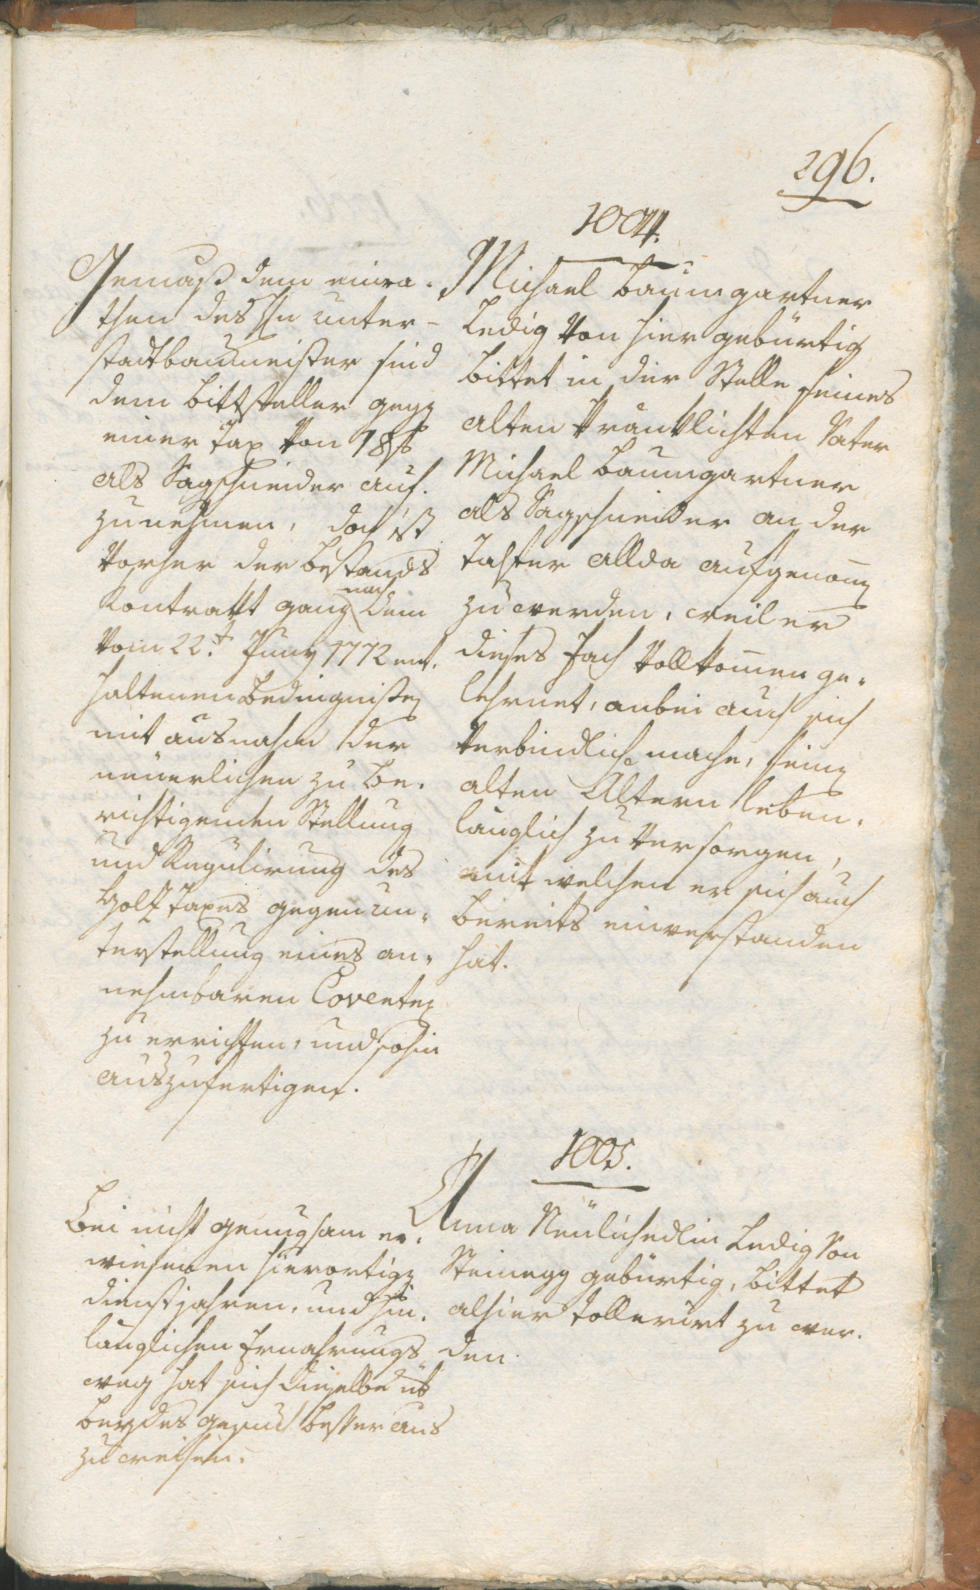 296.
1004.
Gemaß dem einra-
then des Hn unter-
stadtbaumeister sind
dem bittsteller gegen
einer Tax von 18 f
als Sagschneider auf-
zunehmen, doch ist
vorher der bestands
Kontrakt ganz nach dem
vom 22.t Juny 1772 ent-
haltenen bedingnißen
mit ausnahm der
neuerlichen zu be-
richtigenden Stellung
und Regulirung des
Holz taxes gegen un-
terstellung eines an-
nehmbaren Coventen
zu errichten, und sohin
auszufertigen.
Michael baumgartner
ledig von hier gebürtig
bittet in der Stelle seines
alten kränklichsten Vater
Michael baumgartner
als Sagschneider an der
Talfer allda aufgenomen
zu werden, weil er
dieses Fach vollkomen ge-
lehrnet, anbei auch sich
verbindlich mache, seine
alten Altern leben-
länglich zu versorgen,
mit welchen er sich auch
bereits einverstanden
hat.
1005.
Bei nicht genugsam er-
wiesenen hierortigen
dienstjahren, und hin-
länglichen Ernahrungs
weg hat sich dieselbe üb
beydes genau besser aus
zu weisen.
Anna Neulichedlin ledig von
Steinegg gebürtig, bittet
alhier tollerirt zu wer-
den.